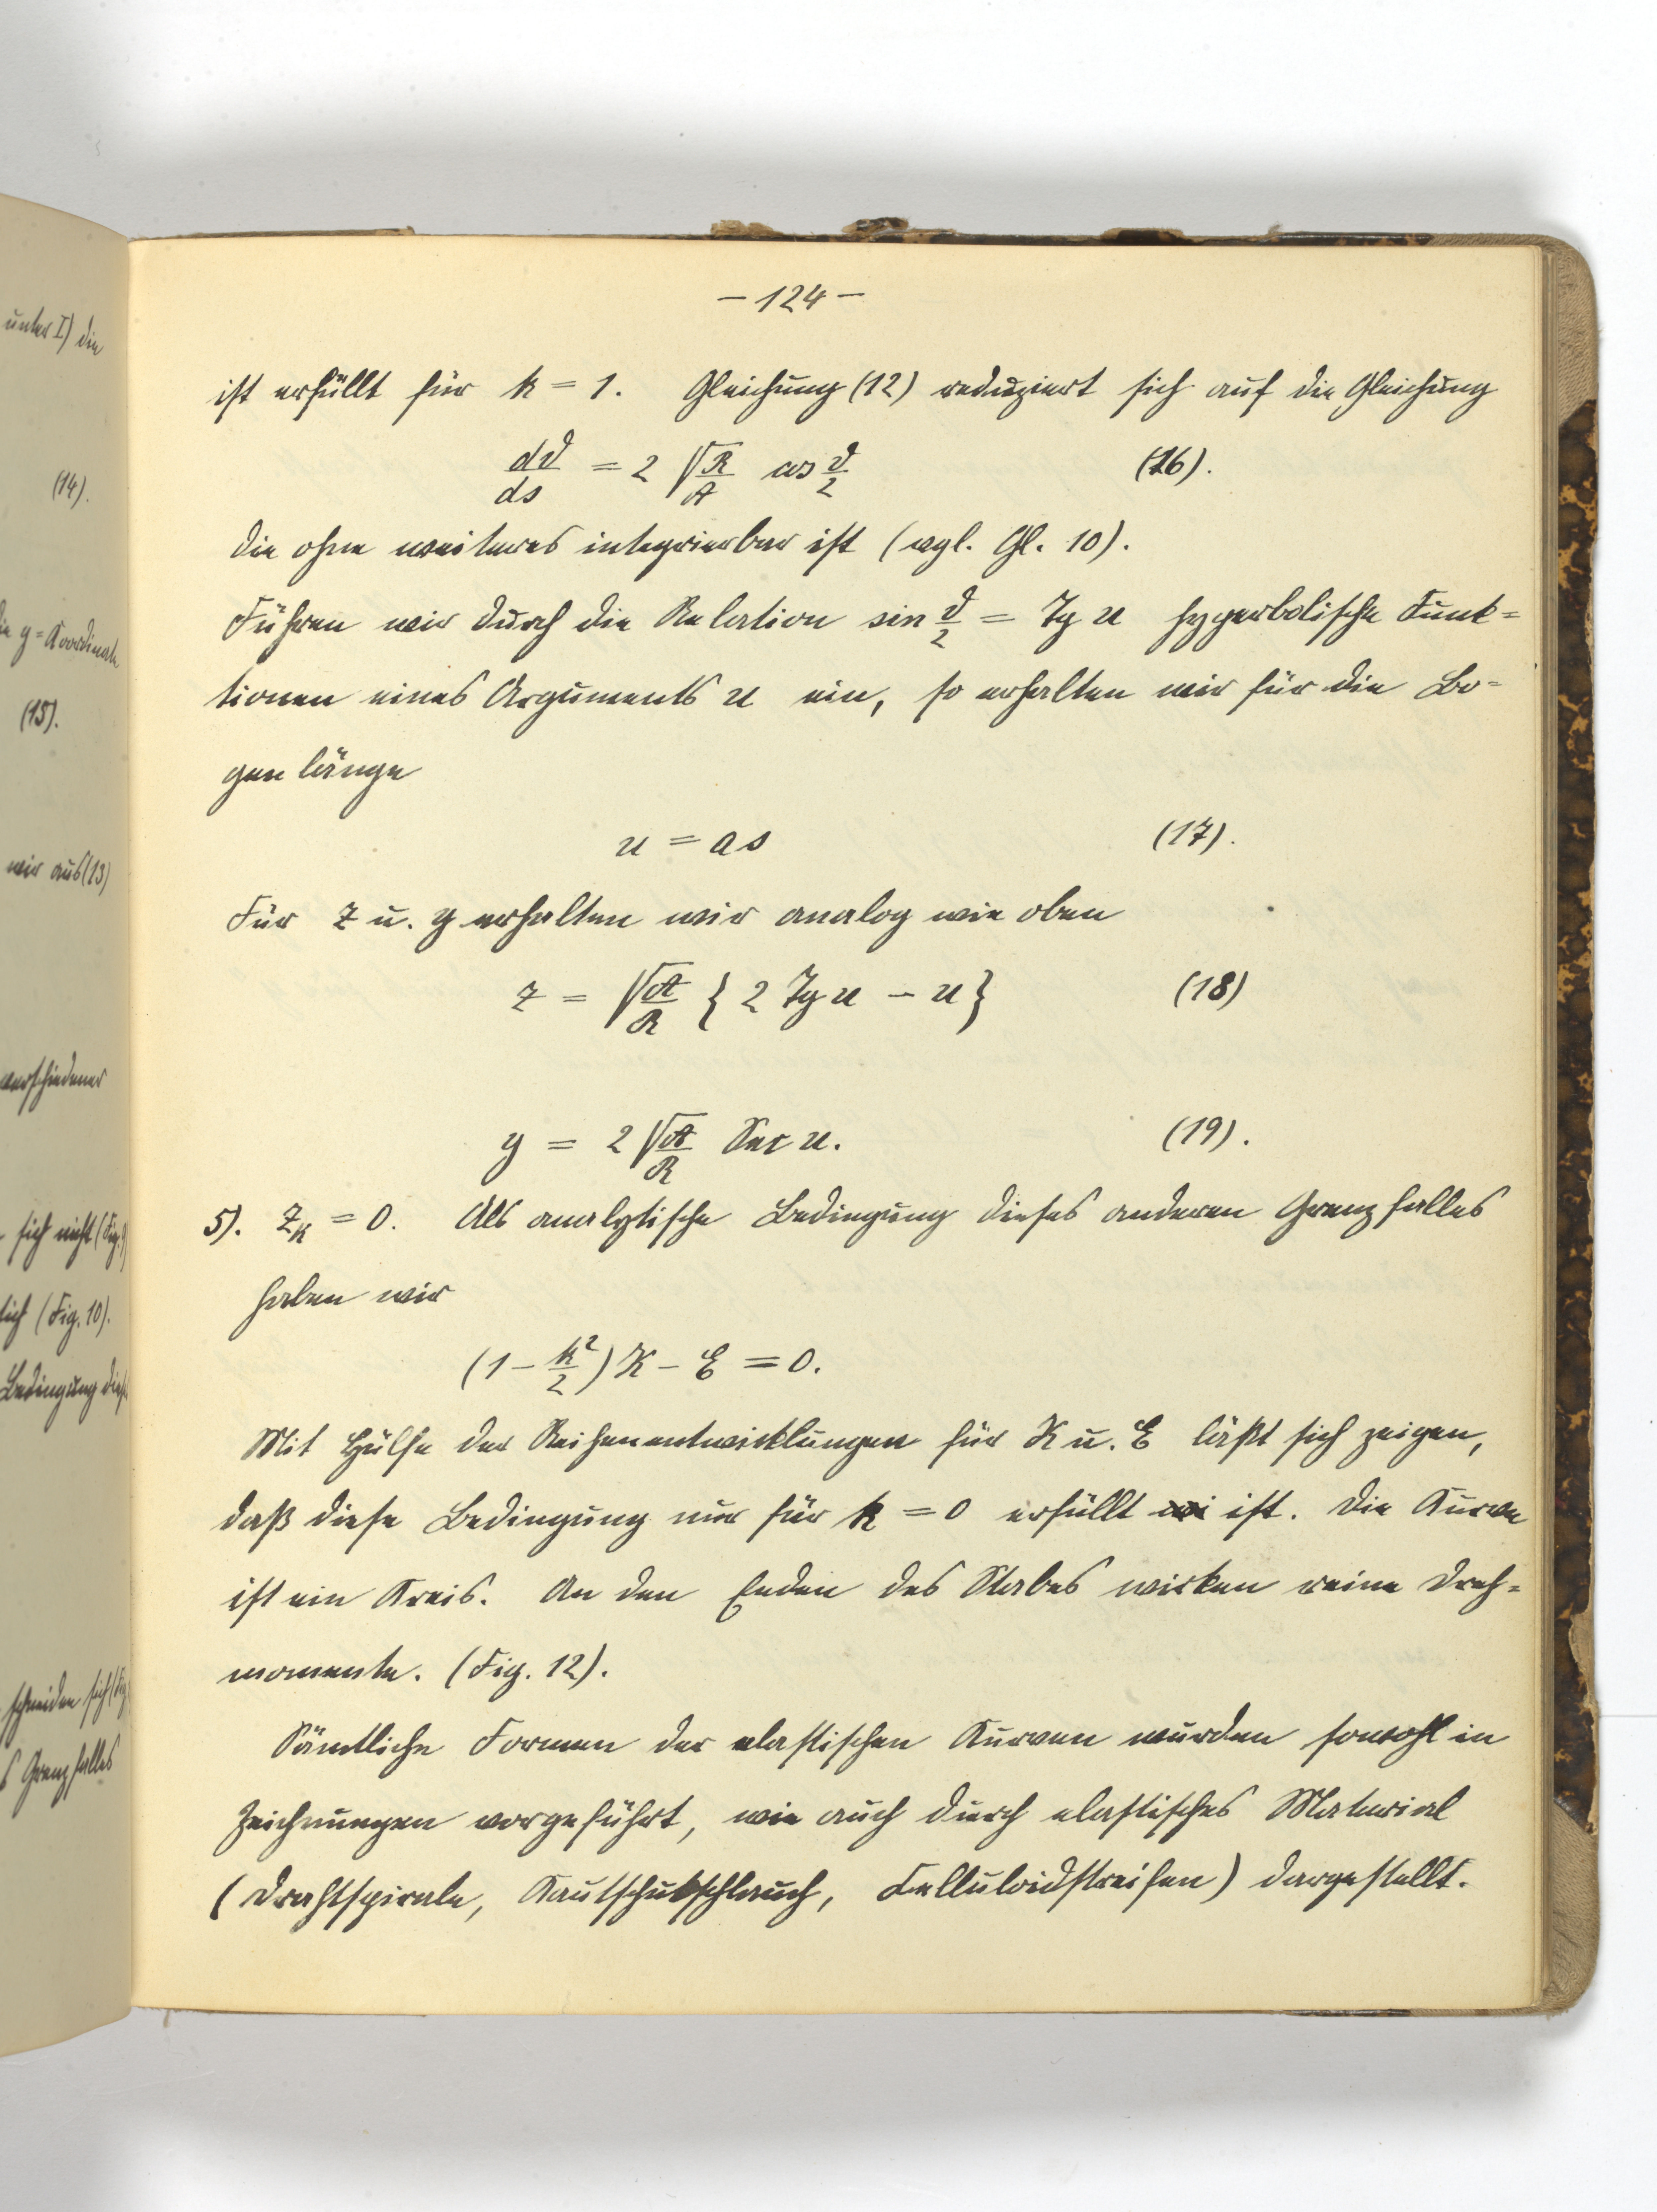 unter I) die
(14).
die y=Koordinate
(15).
wir aus (13)
verschiedener
sich nicht (Fig. 9)
lich (Fig. 10).
Bedingung
schneiden sich (Fig
Grenzfalles
– 124 –
ist erfüllt für k = 1. Gleichung (12) reduziert sich auf die Gleichung
dϑ/ds = 2 √(R/A) cos ϑ/2 (16).
die ohne weiteres integrierbar ist (vgl. Gl. 10).
Führen wir durch die Relation sin ϑ/2 = Tg u hyperbolische Funk=
tionen eines Arguments u ein, so erhalten wir für die Bo=
genlänge
u = as (17).
Für z u. y erhalten wir analog wie oben
z = √(A/R) { 2 Tg u – u } (18)
y = 2 √(A/R) Sec u. (19).
5). z_K = 0. Als analytische Bedingung dieses anderen Grenzfalles
haben wir
(1 – k²/2) K – E = 0.
Mit Hülfe der Reihenentwicklungen für K u. E läßt sich zeigen,
daß diese Bedingung nur für k = 0 erfüllt ist. Die Kurve
ist ein Kreis. An den Enden des Stabes wirken reine Dreh=
momente. (Fig. 12).
Sämtliche Formen der elastischen Kurven wurden sowohl in
Zeichnungen vorgeführt, wie auch durch elastisches Material
(Drahtspirale, Kautschukschlauch, Celluloidstreifen) dargestellt.